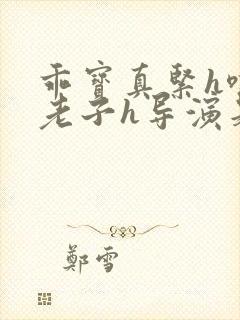 乖寶真緊h
老子h导演
鄭雪